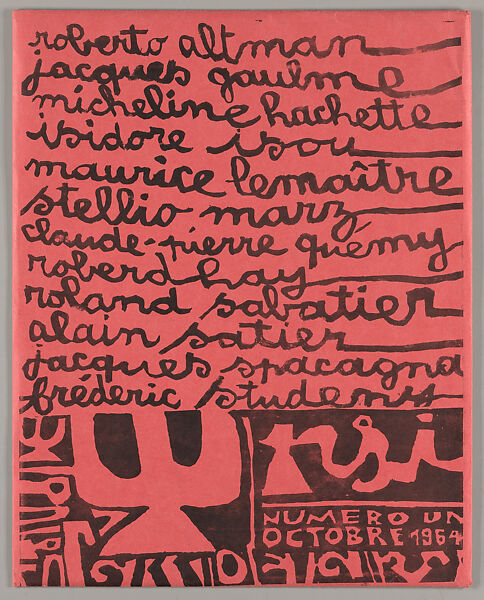 roberto altman
jacques gaulme
micheline hachette
isidore isou
maurice lemaître
stellio marz
claude-pierre quémy
roberd hay
roland sabatier
alain satier
jacques spacagna
fréderic studeny
Ψ rsi
NUMERO UN
OCTOBRE 1964